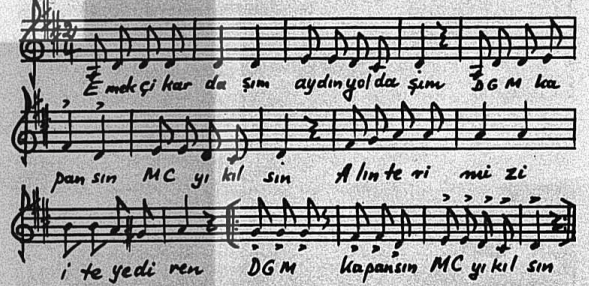 Emekçi kar da şım aydın yol da şım DGM ka
pan sın MC yı kıl sın Alın te ri mi zi
i te yedi ren DGM kapansın MC yı kıl sın